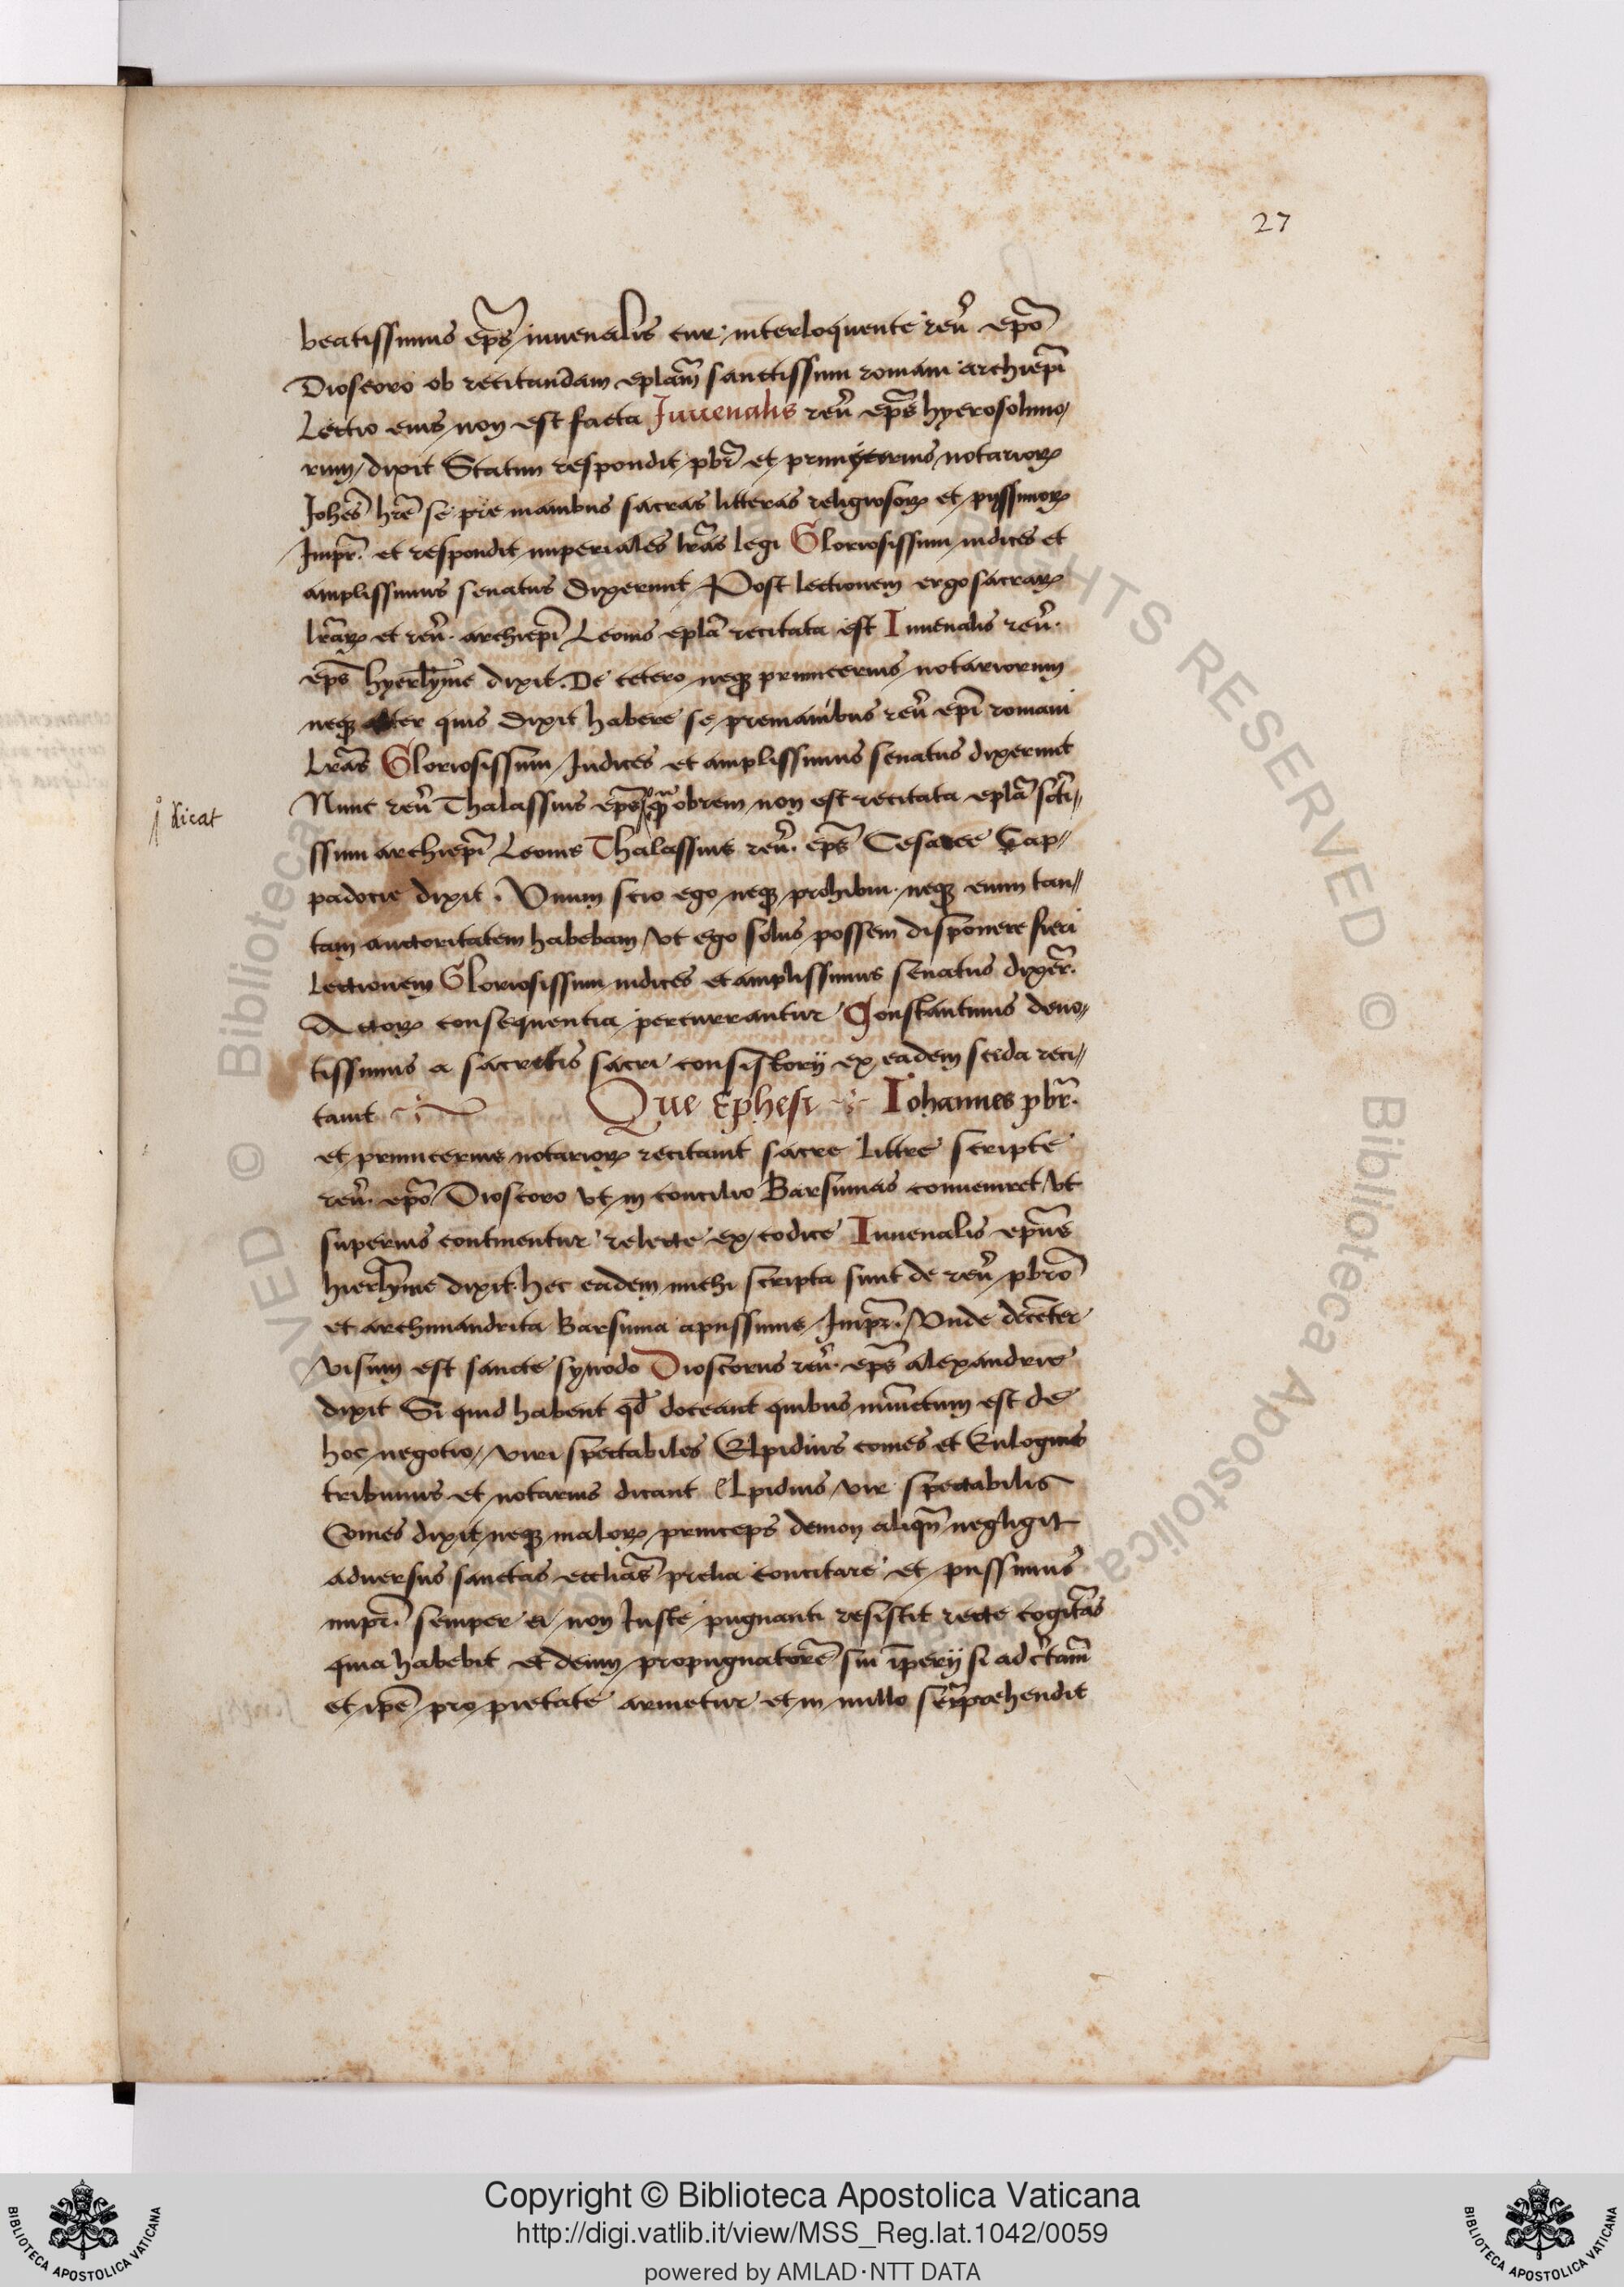 27
beatissimus ep̄s iuuenalis cur interloquente reu̅ ep̄o
Dioscoro ob recitandam epl̄am sanctissimi romani archiep̄i
Lectio eius non est facta Iuuenalis reu̅ ep̄s hyerosolimo/
rum dixit Statim respondit pb̄r et notarioꝝ
Joh̄es hr̄e se pre manibus sacras litteras religiosoꝝ et pijssimoꝝ
Imp̄r. et respondit imperiales lr̄as legi Gloriosissimi iudices et
amplissimus senatus dixerunt Post lectionem ergo sacraꝝ
lr̄aꝝ et reu̅. archiep̄i Leonis epl̄a recitata est Iuuenalis reu̅.
ep̄s hyerl̄yme dixit. De cetero neqꝫ primicerius notariorum
neqꝫ alter quis dixit habere se premanibus reu̅ ep̄i romani
Lr̄as Gloriosissimi Iudices et amplissimus senatus dixerunt
Nunc reu̅ Thalassius ep̄s obrem non est recitata epl̄a sc̄ti/
dicat
ssimi archiep̄i Leonis Thalassius reu̅. ep̄s Cesaree Cap/
padocie dixit. Vnum scio ego neqꝫ prohibui. neqꝫ enim tan//
tam auctoritatem habebam vt ego solus possem disponere fieri
Lectionem Gloriosissimi iudices et amplissimus senatus dixer̄.
Actoꝝ consequentia percurrantur Constantinus deuo/
tissimus a sacretis sacri consistorij ex eadem scida reci//
tauit Que Ephesi Iohannes pb̄r.
et primicerius notarioꝝ recitauit sacre littre scripte
reu̅. ep̄o Dioscoro vt in concilio Barsumas conueniret vt
superius continentur relecte ex codice Iuuenalis
hierl̄yme dixit. hec eadem michi scripta sunt de reu̅ pbr̄o
et archimandrita Barsuma apijssimis Imp̄r. Vnde decēter
visum est sancte synodo Dioscorus reu̅. ep̄s alexandrie
dixit Si quid habent qd̄ doceant quibus est de
hoc negotio viri spectabiles Elpidius comes et Eulogius
tribunus et notarius dicant Elpidius vir spectabilis
Comes dixit neqꝫ maloꝝ princeps demon aliqn̄ negligit
aduersus sanctas eccl̄ias prelia concitare et pijssimus
imp̄r. semper ei non Iuste pugnanti resistit recte cogitās
quia habebit et deum propugnatorē sui īperij si ad
et ip̄e pro pietate armetur et in nullo
Copyright © Biblioteca Apostolica Vaticana
http://digi.vatlib.it/view/MSS_Reg.lat.1042/0059
powered by AMLAD·NTT DATA